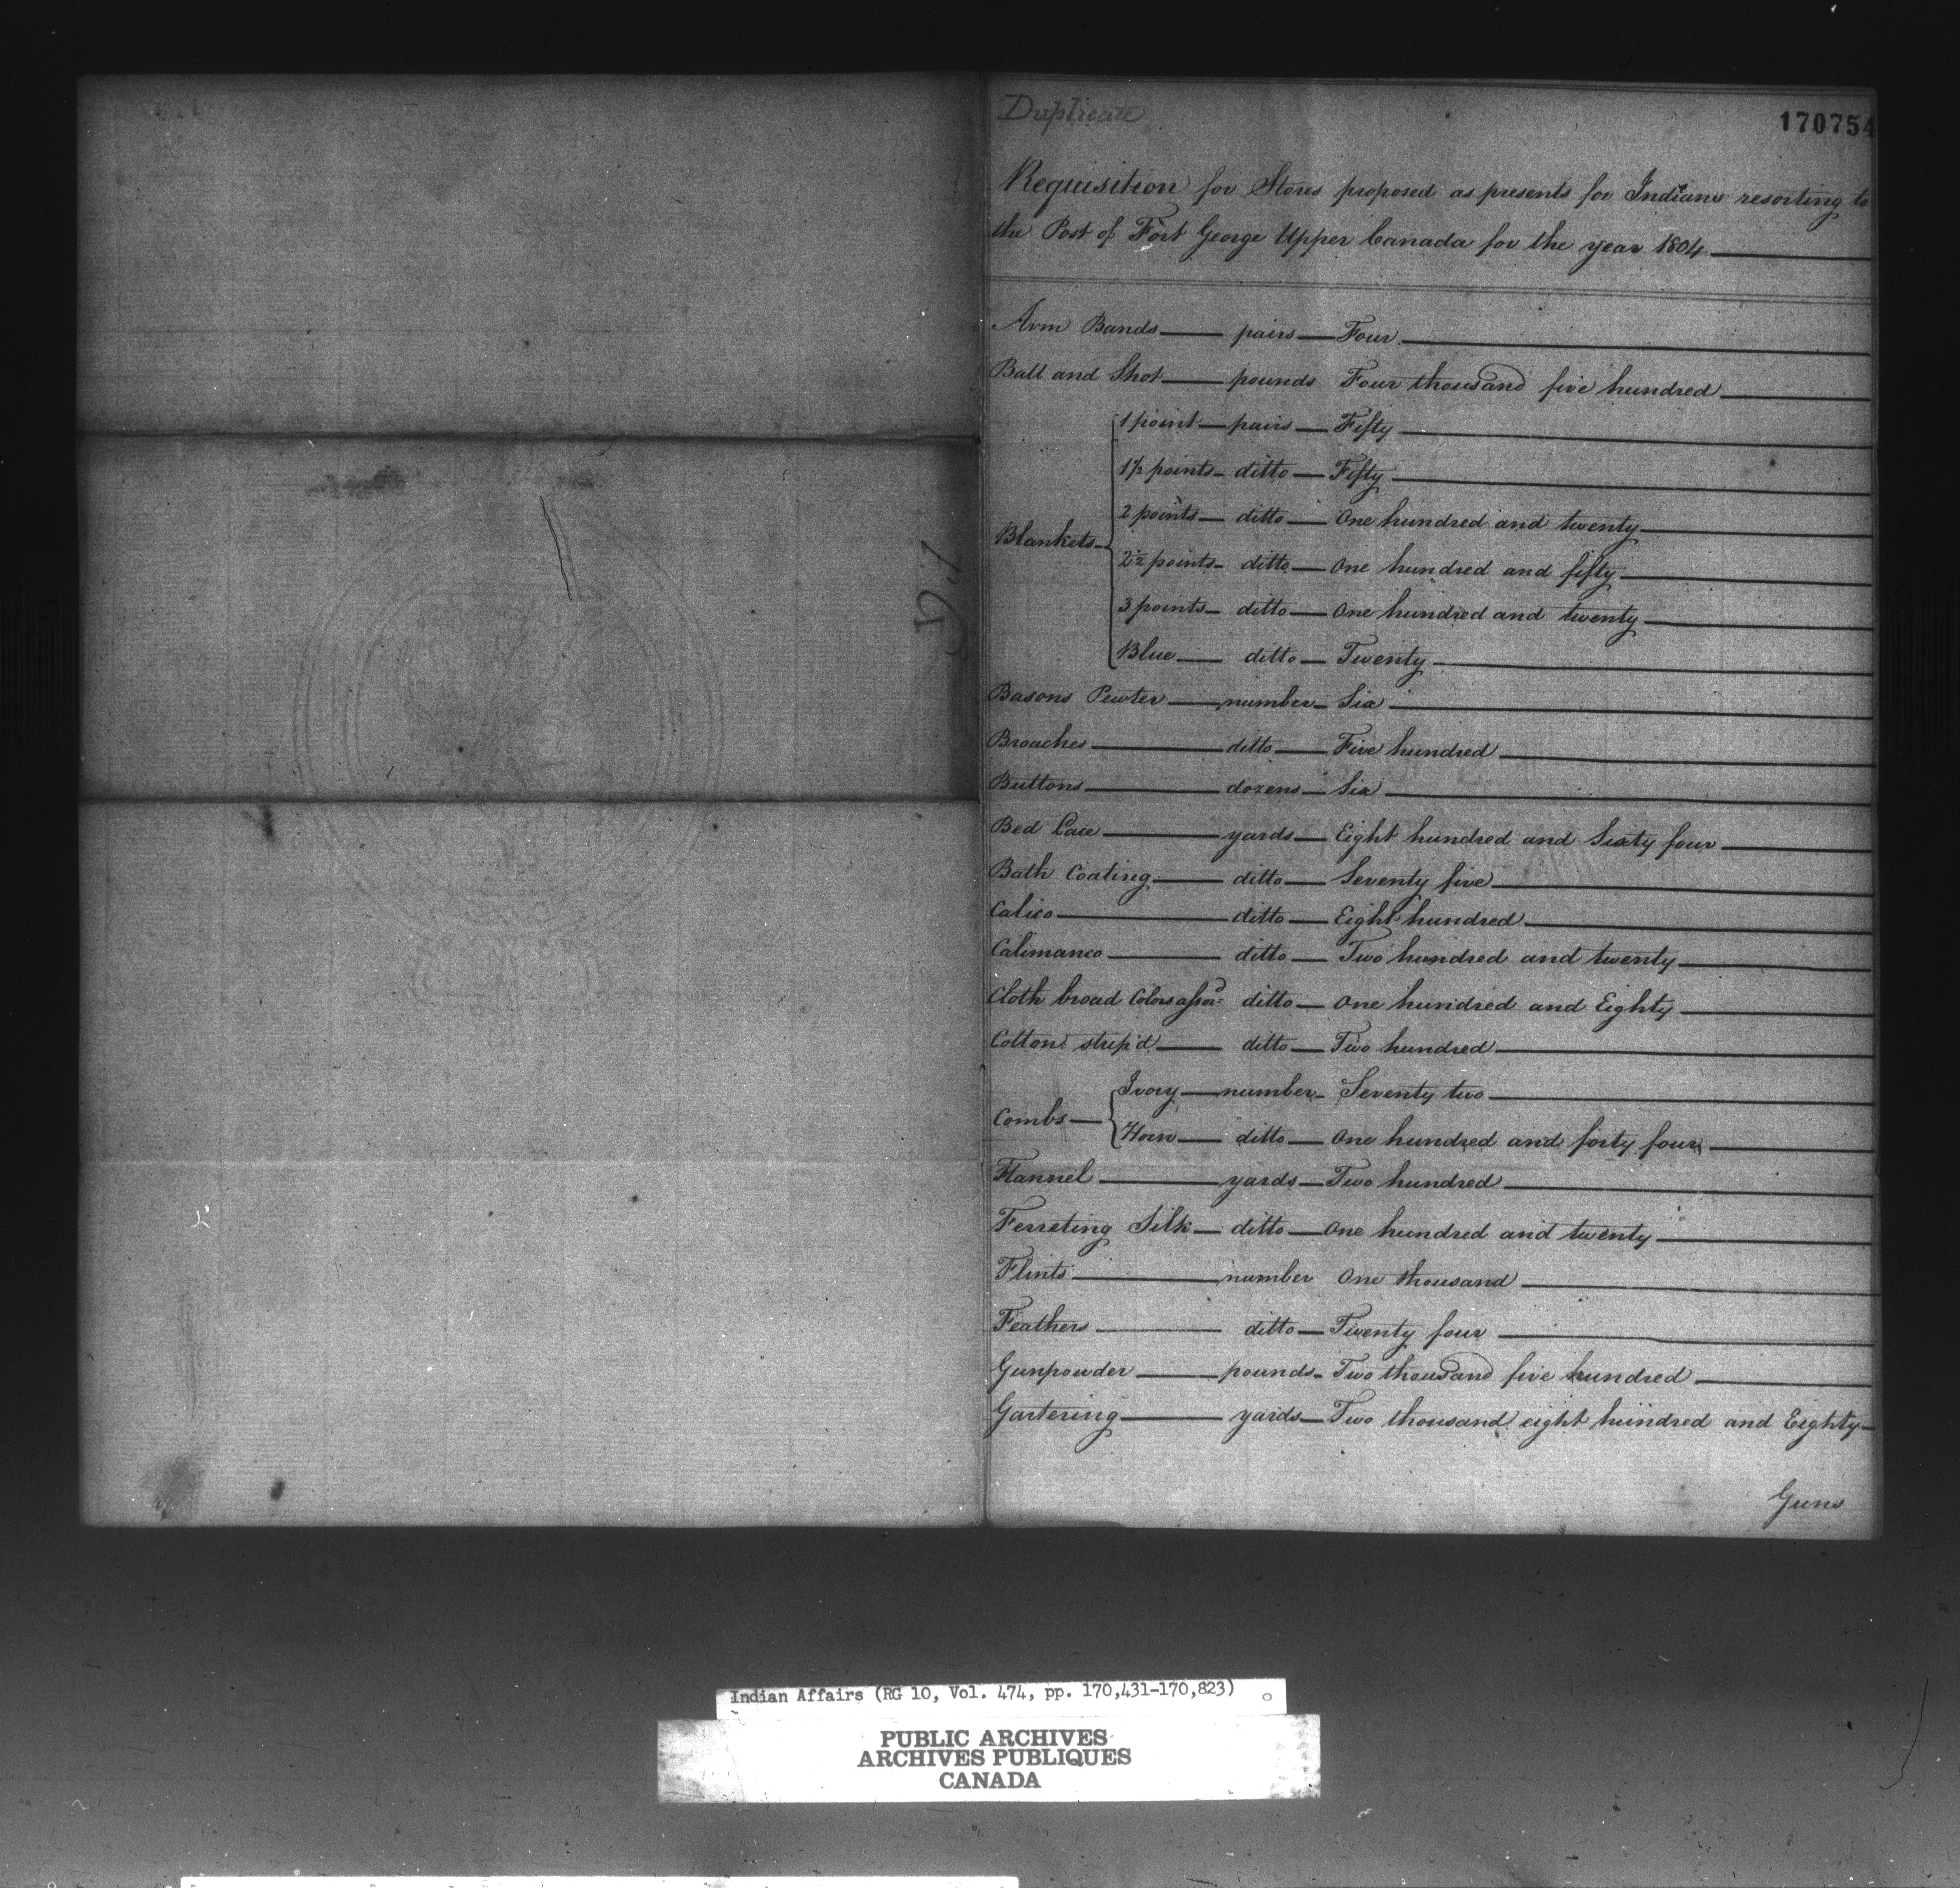 Duplicate
170754
Requisition for Stores proposed as presents for Indians resorting to
the Post of Fort George Upper Canada for the year 1804
Arm Bands pairs Four
Ball and Shot pounds Four thousand five hundred
1 point pairs Fifty
1½ points ditto Fifty
2 points ditto One hundred and twenty
Blankets
2½ points ditto One hundred and fifty
3 points ditto One hundred and twenty
Blue ditto Twenty
Basons Pewter number Six
Broaches ditto Five hundred
Buttons dozens Six
Bed Lace yards Eight hundred and Sixty four
Bath Coating ditto Seventy five
Calico ditto Eight hundred
Calimanco ditto Two hundred and twenty
Cloth broad Colors assor'd ditto One hundred and Eighty
Cotton strip'd ditto Two hundred
Ivory number Seventy two
Combs
Horn ditto One hundred and forty four
Flannel yards Two hundred
Ferreting Silk ditto One hundred and twenty
Flints number One thousand
Feathers ditto Twenty four
Gunpowder pounds Two thousand five hundred
Gartering yards Two thousand eight hundred and Eighty
Guns
Indian Affairs (RG 10, Vol. 474, pp. 170,431-170,823)
PUBLIC ARCHIVES
ARCHIVES PUBLIQUES
CANADA